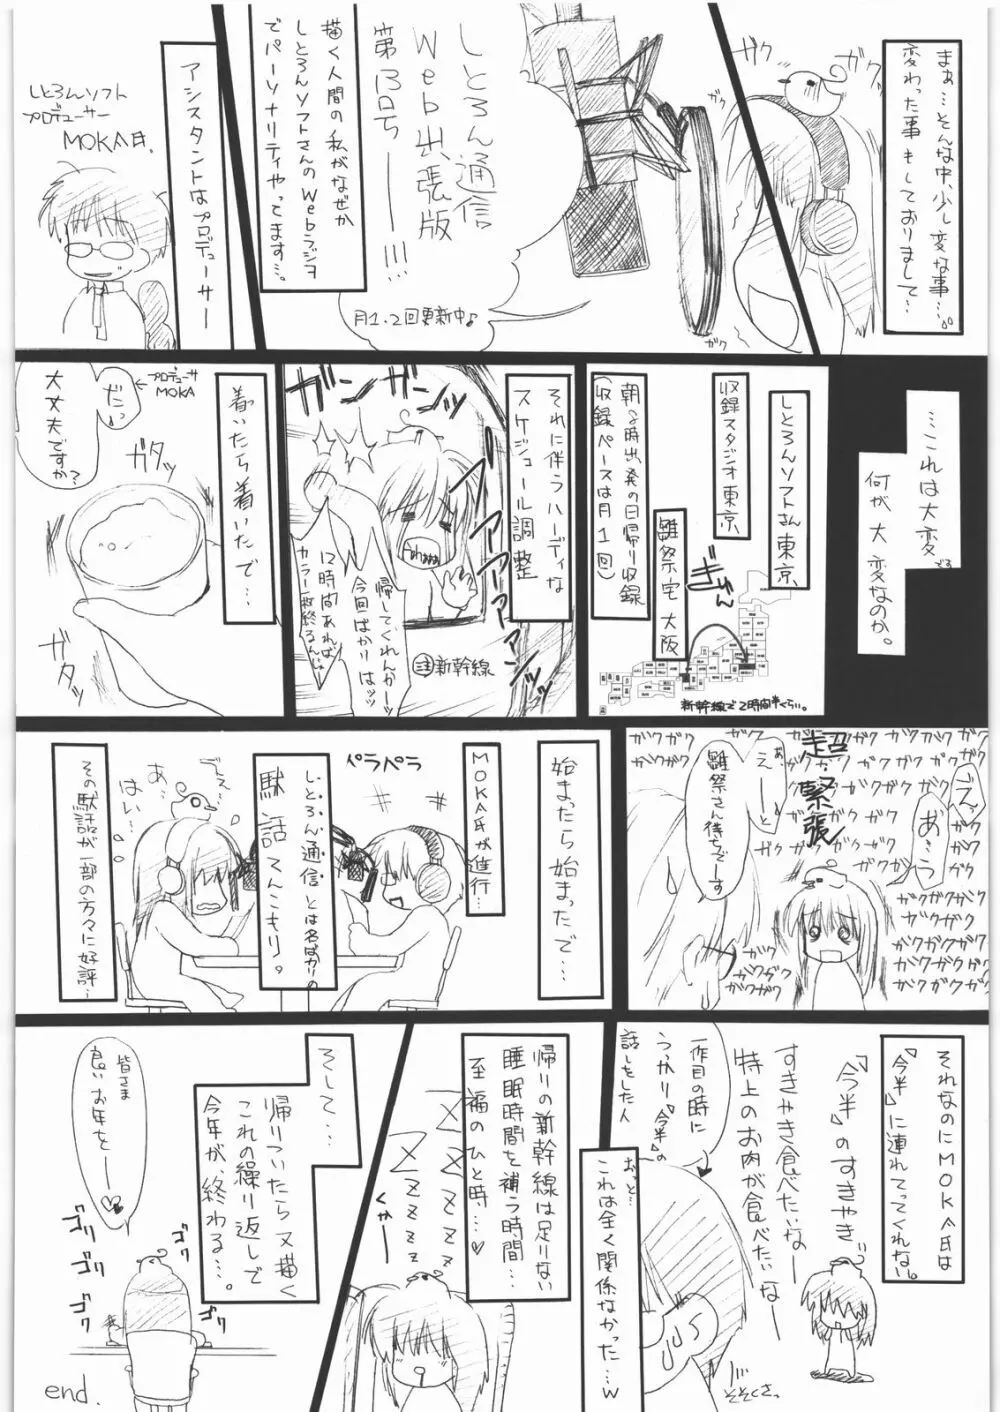 まぁ…そんな中少し変な事…
変わった事もしておりまして…
ガク
ガク
ガク
ガク
しとろん通信
Web出張版
第13号ー!!!!
月1、2回更新中♪
描く人間の私がなぜか
しとろんソフトさんのWebラジヲ
でパーソナリティやってます…。
アシスタントはプロデューサー
しとろんソフト
プロデューサー
MOKA氏.
…これは大変
でる
何が大変なのか。
しとろんソフトさん東京、
収録スタジオ東京
雛祭宅大阪
ぎゅん
新幹線で2時間半くらい。
朝8時出発の日帰り収録
(収録ペースは月1回)
それに伴うハーディな
スケジュール調整
注新幹線
帰してくれんかーッ
今回ばかりはッ
12時間あれば
カラー1枚終るんじゃー
着いたら着いたで…
だっ
←プロデューサ
MOKA
大丈夫ですか?
ガタッ
ガタッ
超緊張
えっ
あ…う
あ
えーーと
雛祭さん待ちでーす
ガクガクガクガク
始まったら始まったで…
MOKA氏が進行…
ペラペラ
しとろん通信とは名ばかりの
駄話てんこもり。
でぇ…
あ…
はい…
その駄話が一部の方々に好評…
それなのにMOKA氏は
『今半』に連れてってくれない。
『今半』のすきやき
すきやき食べたいなー
特上のお肉が食べたいなー
一作目の時に
うっかり『今半』の
話しをした人
おっと…
これは全く関係なかった…w
そそくさっ
帰りの新幹線は足りない
睡眠時間を補う時間…
至福のひと時…♡
Zzzzz
Zzzzz
くかーー
そして…
帰りついたら又描く
これの繰り返しで
今年が、終わる…。
皆さま
良いお年をーー♡
ゴリ
ゴリ
ゴリ
ゴリ
end.